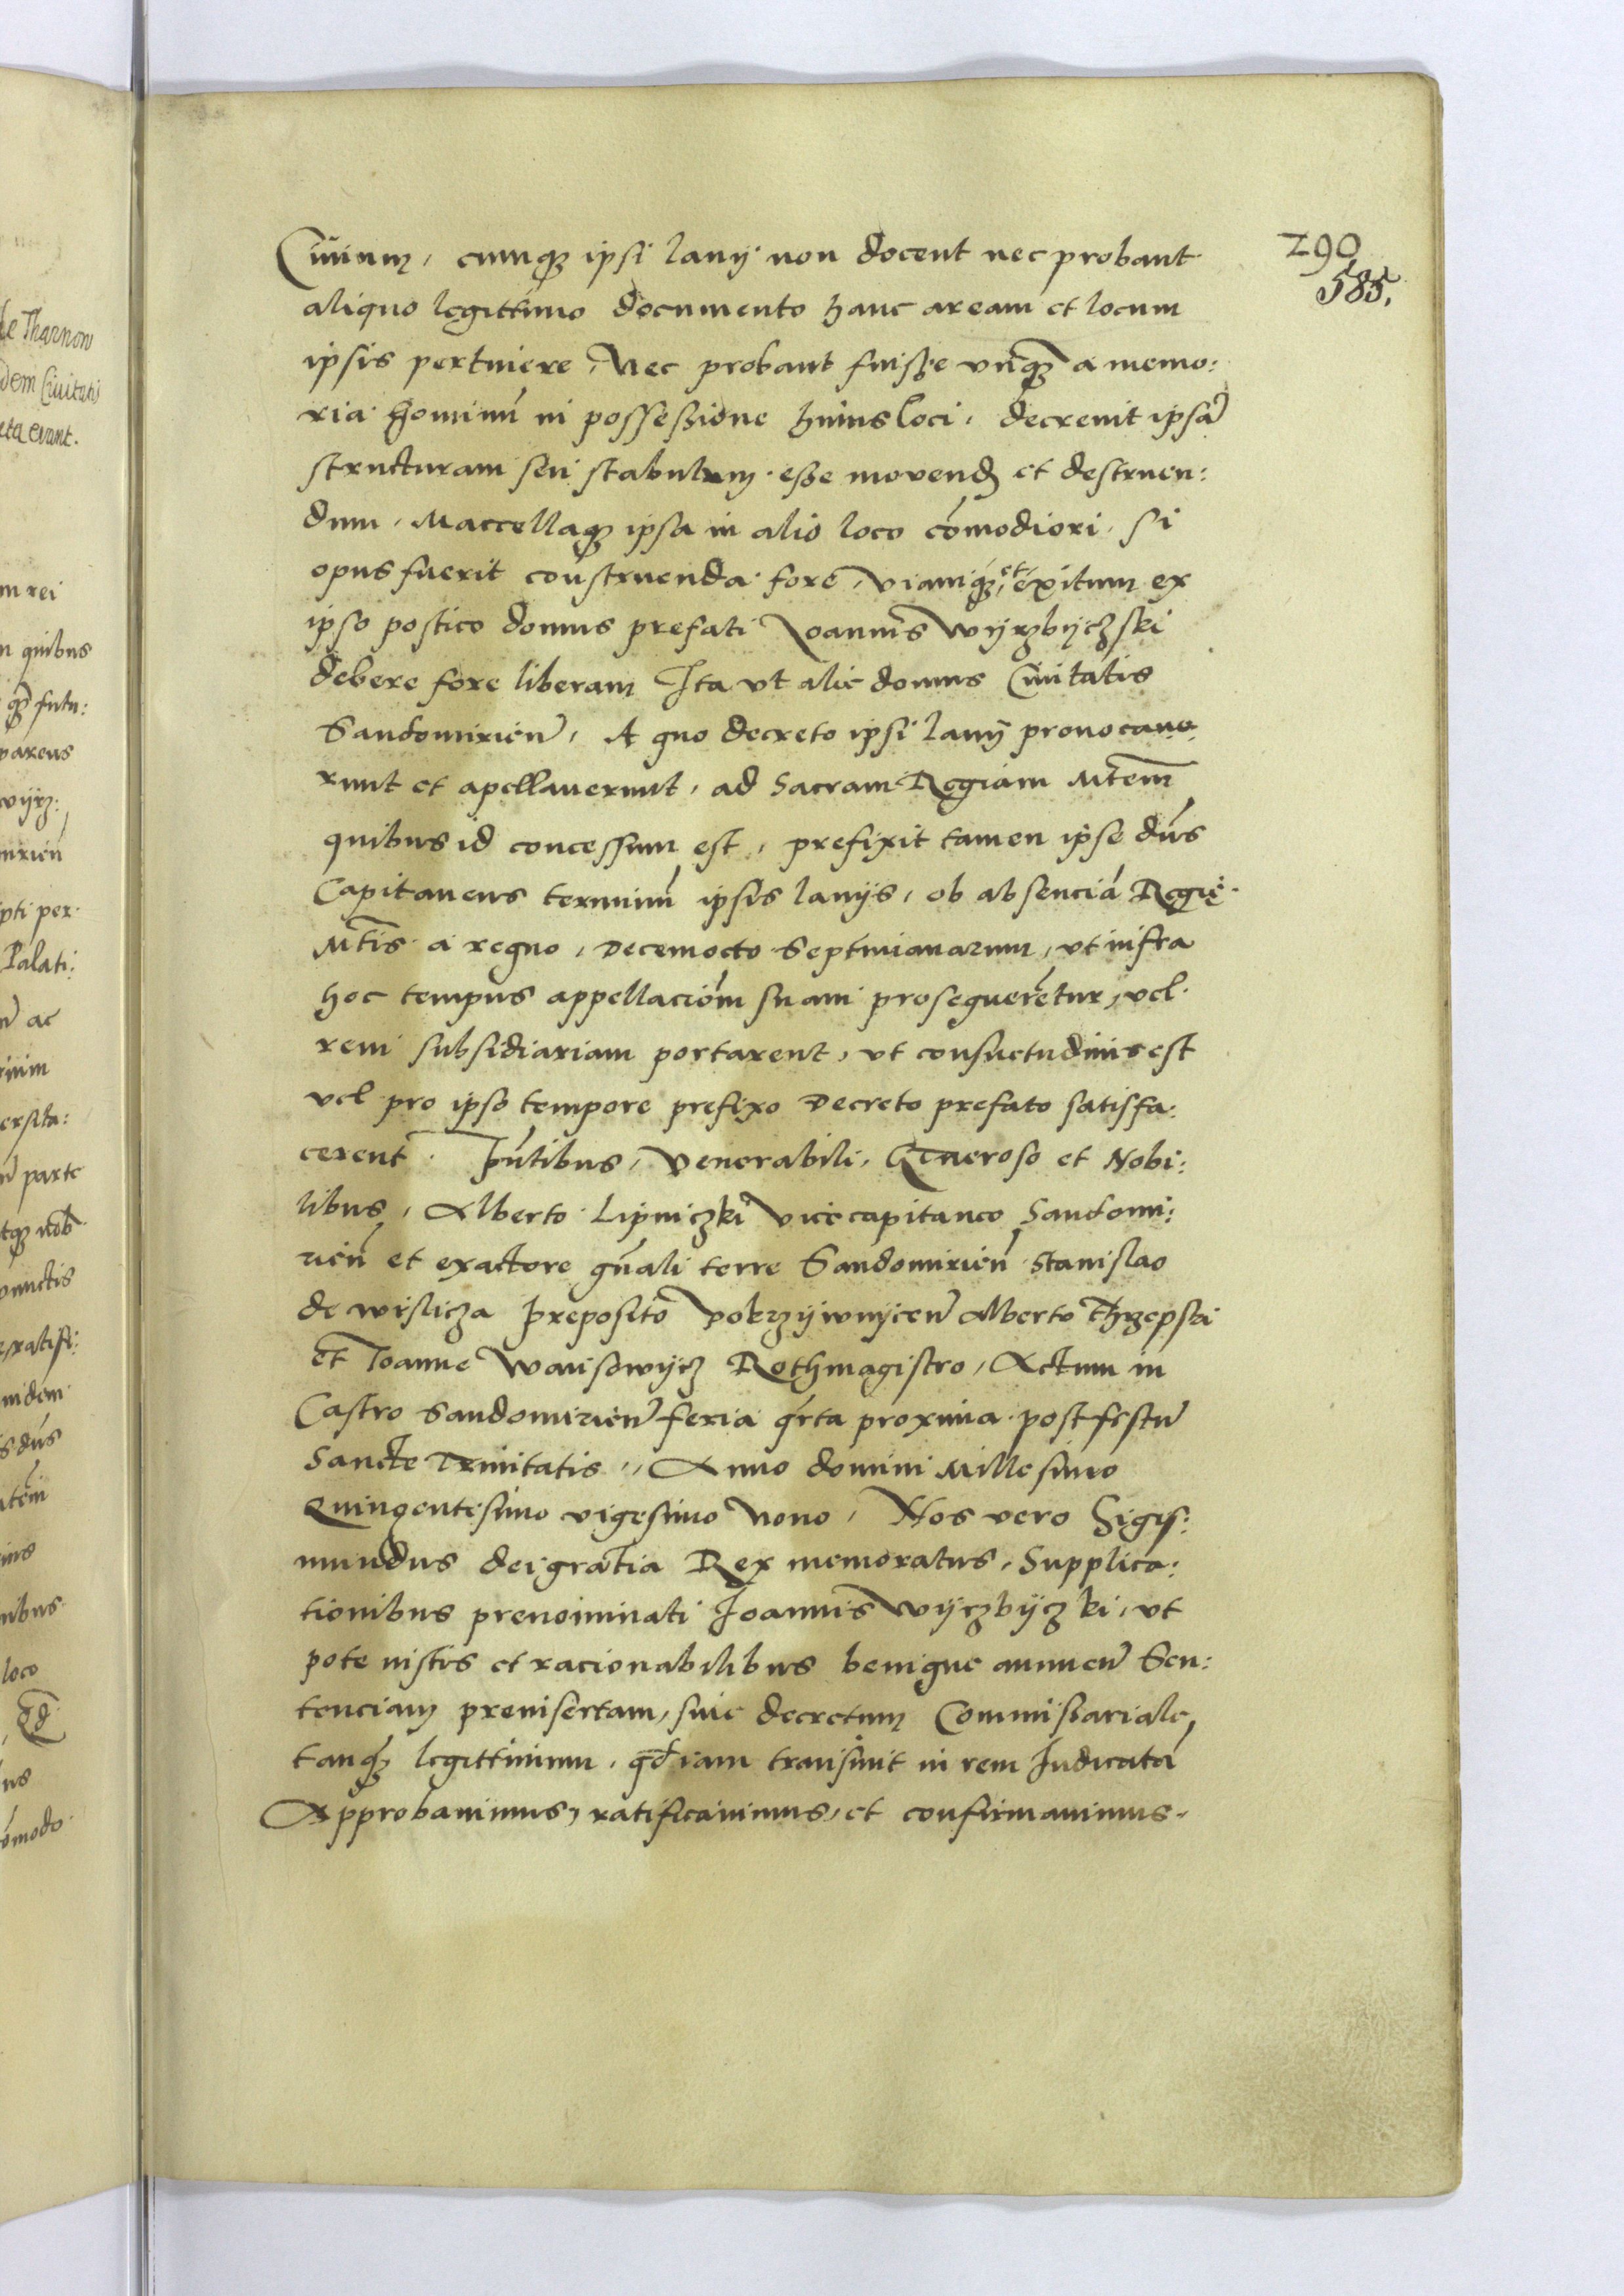 290
585.
Civium, cumqꝫ ipsi lanij non docent nec probant
aliquo legittimo documento hanc aream et locum
ipsis pertinere, Nec probant fuisse unq̄ꝫ a memo:
ria hominū in possessione huius loci, decrevit ipsā
structuram seu stabulum esse movend et destruen:
dum, Maccellaqꝫ ipsa in alio loco cōmodiori, si
opus fuerit construenda fore, viamqꝫ, et exitum ex
ipso postico domus prefati Joannis Wyrzbyczski
debere fore liberam Ita ut alie domus Civitatis
Sandomirieñ, A quo decreto ipsi lanij provocave
runt et apellaverunt, ad Sacram Regiam Mtem̄
quibus id concessum est, prefixit tamen ipse dñs
Capitaneus terminū ipsis lanijs, ob absenciā Regię
Mt̄is a regno, Decemocto Septimanarum, ut infra
hoc tempus appellaciōm suam prosequerētur, vel
rem subsidiariam portarent, ut consuetudinis est
vel pro ipso tempore prefixo Decreto prefato satisfa:
cerent. Pñtibus, Venerabili, Generoso et Nobi:
libus, Alberto Lipniczki Vicecapitaneo Sandomi:
rieñ et exactore gñali terre Sandomirieñ Stanislao
de Wisliczа Preposito Pokrzywnyceñ Alberto Chrzepski
et Ioanne Wansowycz Rothmagistro, Actum in
Castro Sandomirieñ feria qrta proxima post festū
Sancte Trinitatis, Anno domini Millesimo
Quingentesimo vigesimo Nono, Nos vero Sigis:
mundus dei gratia Rex memoratus, Supplica:
tionibus prenominati Joannis Wyrzbyczki, ut
pote iustis et racionabilibus benigne annueñ Sen:
tenciam preinsertam, sive decretum Commissariale
tanqꝫ legittimum, qd iam transivit in rem Iudicatā
Approbavimus, ratificavimus, et confirmavimus.